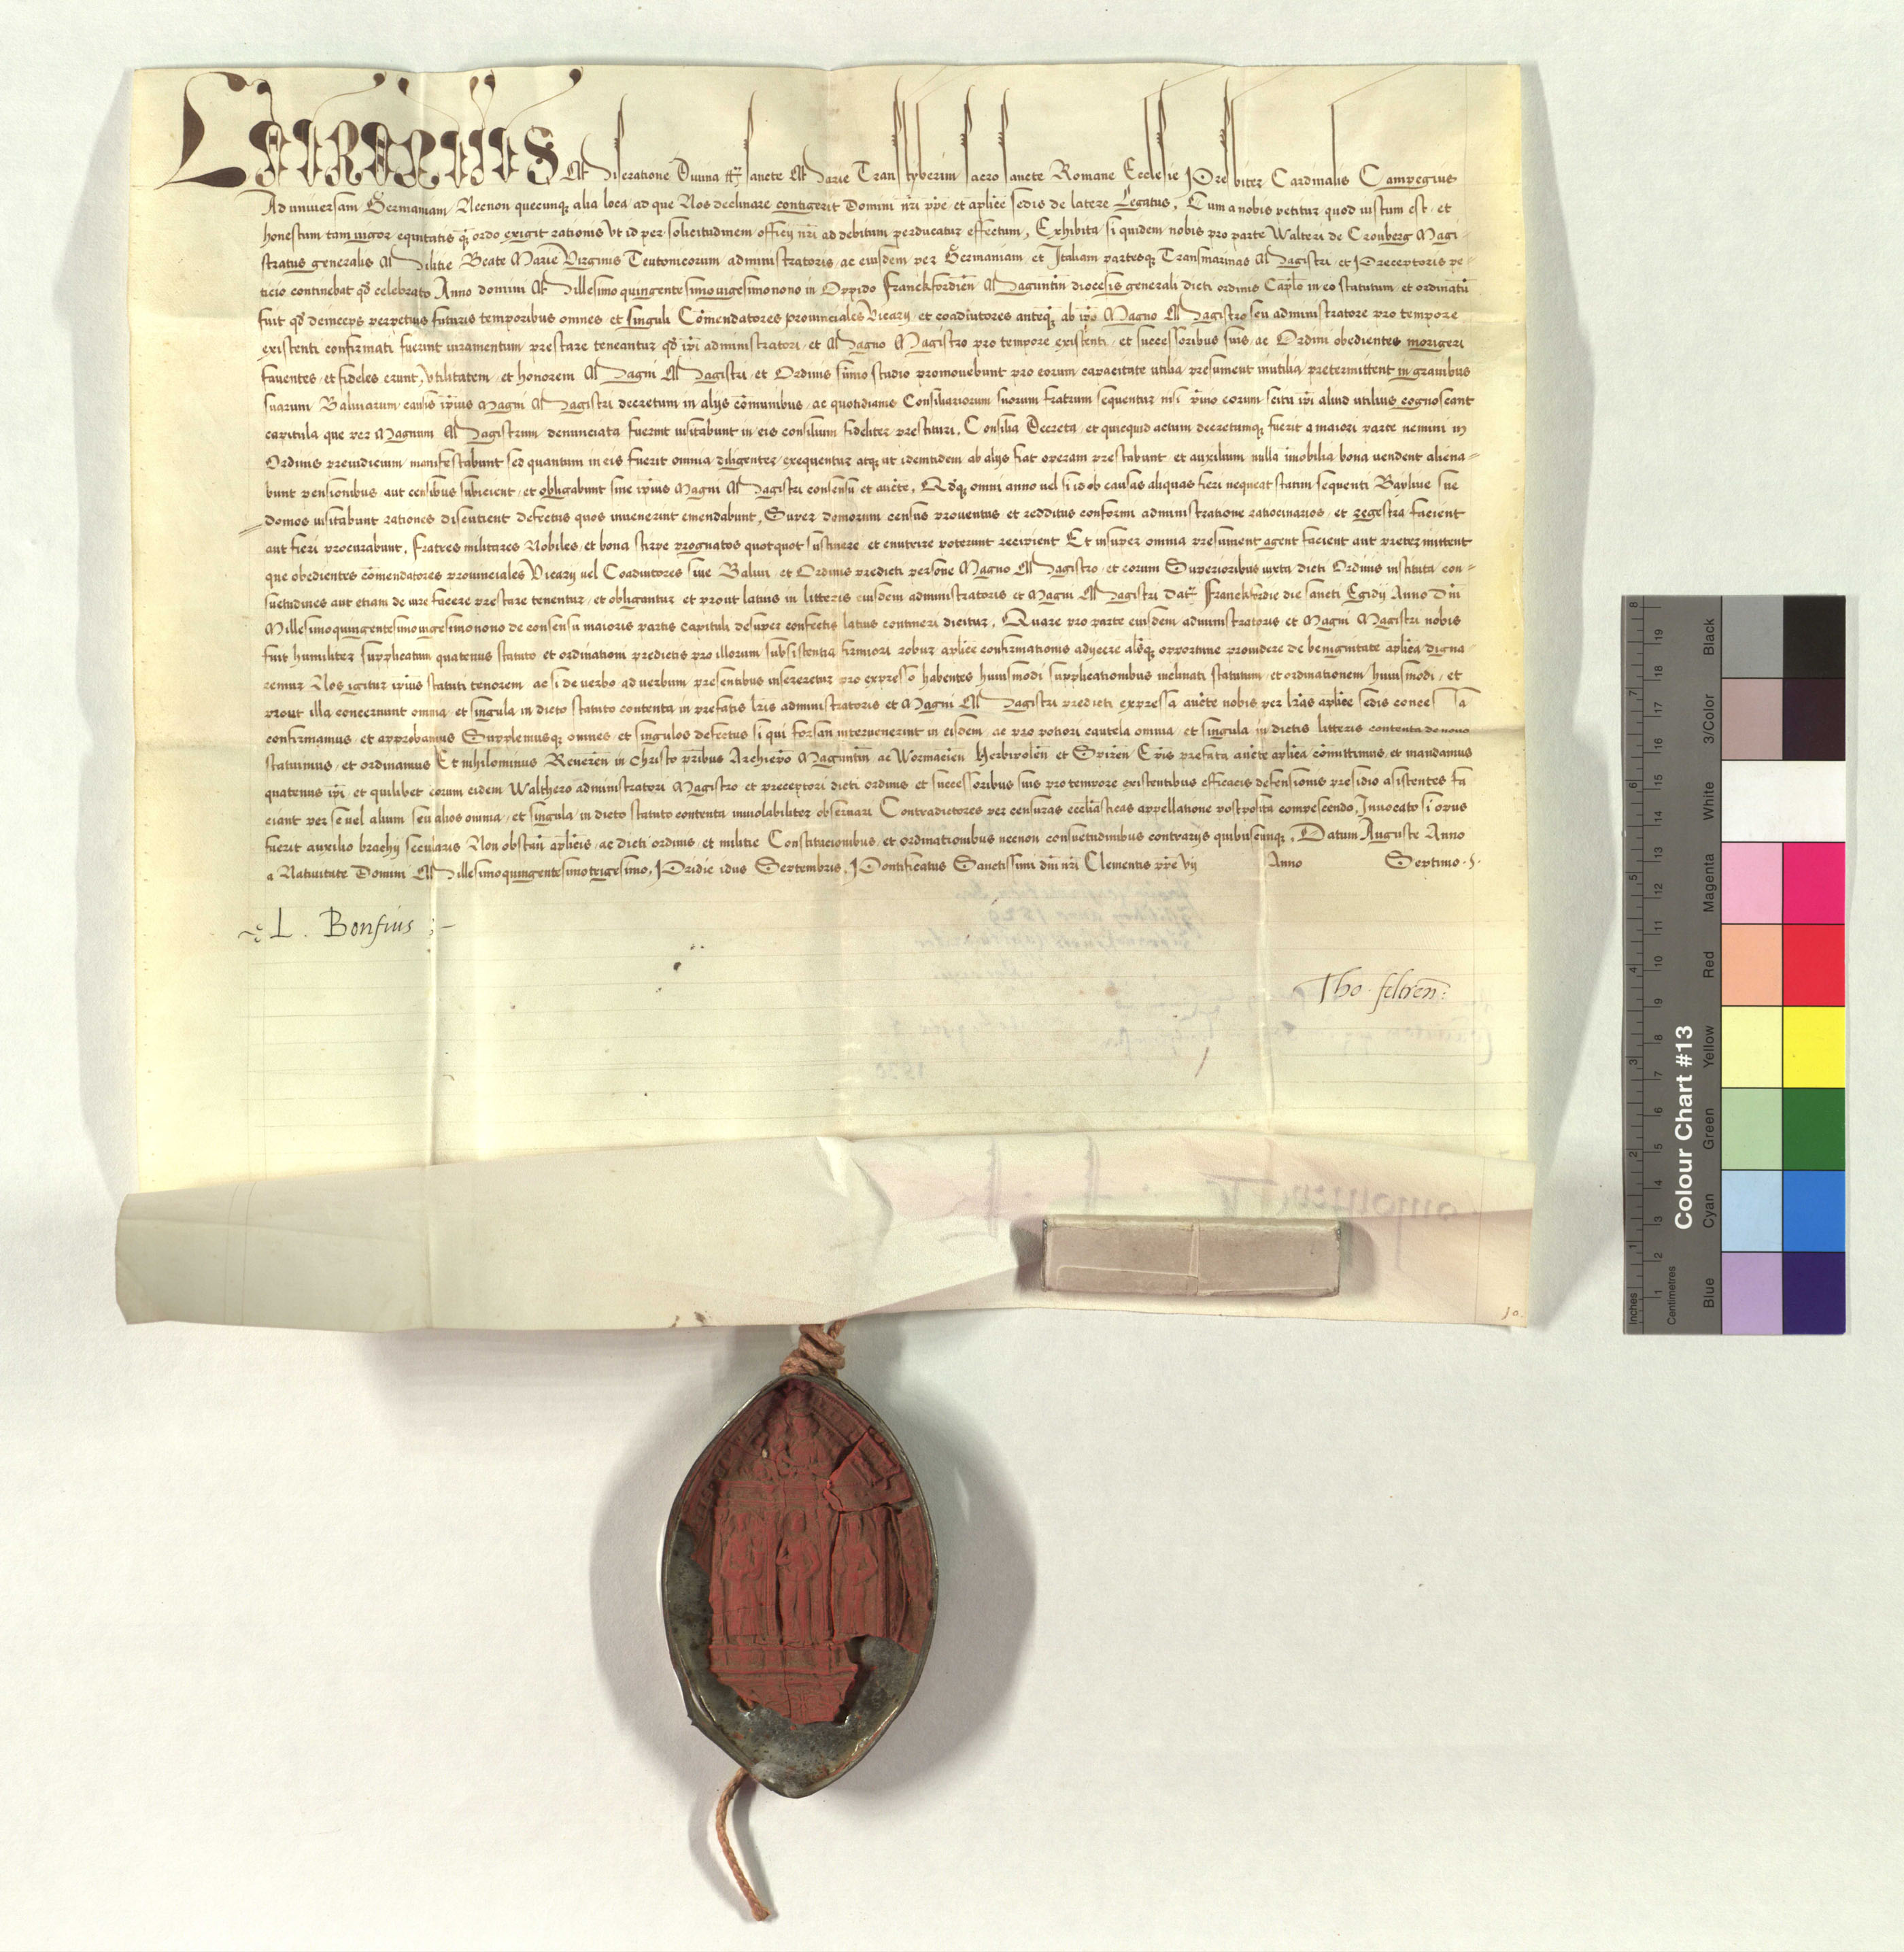 Laurentius Miseratione Divina tt. sancte Marie Transtyberim sacrosancte Romane Ecclesie Presbiter Cardinalis Campegius
Ad universam Germaniam Necnon quecunq; alia loca ad que Nos declinare contigerit Domini nri ppe et aplice sedis de latere Legatus. Cum a nobis petitur quod iustum est et
honestum tam uigor equitatis q ordo exigit rationis Vt id per solicitudinem officij nri ad debitum perducatur effectum, Exhibita si quidem nobis pro parte Walteri de Cronberg Magi-
stratus generalis Militie Beate Marie Virginis Teutonicorum administratoris ac eiusdem per Germaniam et Italiam partesq Transmarinas Magistri et Preceptoris pe-
ticio continebat qd celebrato Anno domini Millesimoquingentesimouigesimonono in Oppido Franckfordien Maguntin diocesis generali dicti ordinis Caplo in eo statutum et ordinatu
fuit qd deinceps perpetuis futuris temporibus omnes et singuli Comendatores prouinciales Vicarij et coadiutores anteq ab ipo Magno Magistro seu administratore pro tempore
existenti confirmati fuerint iuramentum prestare teneantur qd ipi administratori et Magno Magistro pro tempore existenti et successoribus suis ac Ordini obedientes morigeri
fauentes et fideles erunt, Vtilitatem et honorem Magni Magistri et Ordinis sumo studio promouebunt pro eorum capacitate utilia presument inutilia pretermittent in grauibus
suarum Baliuiarum causis ipius Magni Magistri decretum in alijs comunibus ac quotidianis Consiliariorum suorum fratrum sequentur nisi pino eorum scitu ipi aliud utilius cognoscant
capitula que per Magnum Magistrum denunciata fuerint uisitabunt in eis consilium fideliter prestituri. Consilia Decreta et quicquid actum decretumq fuerit a maiori parte nemini in
Ordinis preiudicium manifestabunt sed quantum in eis fuerit omnia diligenter exequentur atq ut identidem ab alijs fiat operam prestabunt et auxilium nulla imobilia bona uendent aliena-
bunt pensionibus aut censibus subicient et obligabunt sine ipius Magni Magistri consensu et aucte. Qdq omni anno uel si id ob causas aliquas fieri nequeat statim sequenti Bayliue sue
domos uisitabunt rationes discutient defectus quos inuenerint emendabunt, Super domorum census prouentus et redditus conformi administratione ratiocinarios et regestra facient
aut fieri procurabunt. Fratres militares Nobiles et bona stirpe prognatos quotquot sustinere et enutrire poterunt recipient Et insuper omnia presument agent facient aut pretermittent
que obedientes comendatores prouinciales Vicarij uel Coadiutores siue Baliui et Ordinis predicti persone Magno Magistro et eorum Superioribus iuxta dicti Ordinis instituta con-
suetudines aut etiam de iure facere prestare tenentur et obligantur et prout latius in litteris eiusdem administratoris et Magni Magistri Dat Franckfordie die sancti Egidij Anno Dni
Millesimoquingentesimouigesimonono de consensu maioris partis capituli desuper confectis latius contineri dicitur. Quare pro parte eiusdem administratoris et Magni Magistri nobis
fuit humiliter supplicatum quatenus statuto et ordinationi predictis pro illorum subsistentia firmiori robur aplice confirmationis adijcere alsq opportune prouidere de benignitate aplica digna-
remur Nos igitur ipius statuti tenorem ac si de uerbo ad uerbum presentibus insereretur pro expresso habentes huiusmodi supplicationibus inclinati statutum et ordinationem huiusmodi et
prout illa concernunt omnia et singula in dicto statuto contenta in prefatis lris administratoris et Magni Magistri predicti expressa aucte nobis per lras aplice sedis concessa
confirmamus et approbamus Supplemusq omnes et singulos defectus si qui forsan interuenerint in eisdem ac pro potiori cautela omnia et singula in dictis litteris contenta de nouo
statuimus et ordinamus Et nihilominus Reueren in Christo pribus Archiepo Maguntin ac Wormacien Herbipolen et Spiren Epis prefata aucte aplica comittimus et mandamus
quatenus ipi et quilibet eorum eidem Walthero administratori Magistro et preceptori dicti ordinis et successoribus suis pro tempore existentibus efficacis defensionis presidio asistentes fa
ciant per se uel alium seu alios omnia et singula in dicto statuto contenta inuiolabiliter obseruari Contradictores per censuras eccliasticas appellatione postposita compescendo. Inuocato si opus
fuerit auxilio brachij secularis Non obstan aplicis ac dicti ordinis et militie Constitucionibus et ordinationibus necnon consuetudinibus contrarijs quibuscunq. Datum Auguste Anno
a Natiuitate Domini Millesimoquingentesimotrigesimo. Pridie idus Septembris. Pontificatus Sanctissimi dni nri Clementis ppe Vij Anno Septimo.
L. Bonfius
Tho. feltren:
10.
Colour Chart #13
Blue Cyan Green Yellow Red Magenta White 3/Color Black
Inches 1 2 3 4 5 6 7 8
Centimetres 1 2 3 4 5 6 7 8 9 10 11 12 13 14 15 16 17 18 19